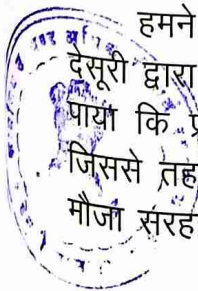 हमने
देसूरी द्वारा
पाया कि प्र
जिससे तह
मौजा सरह